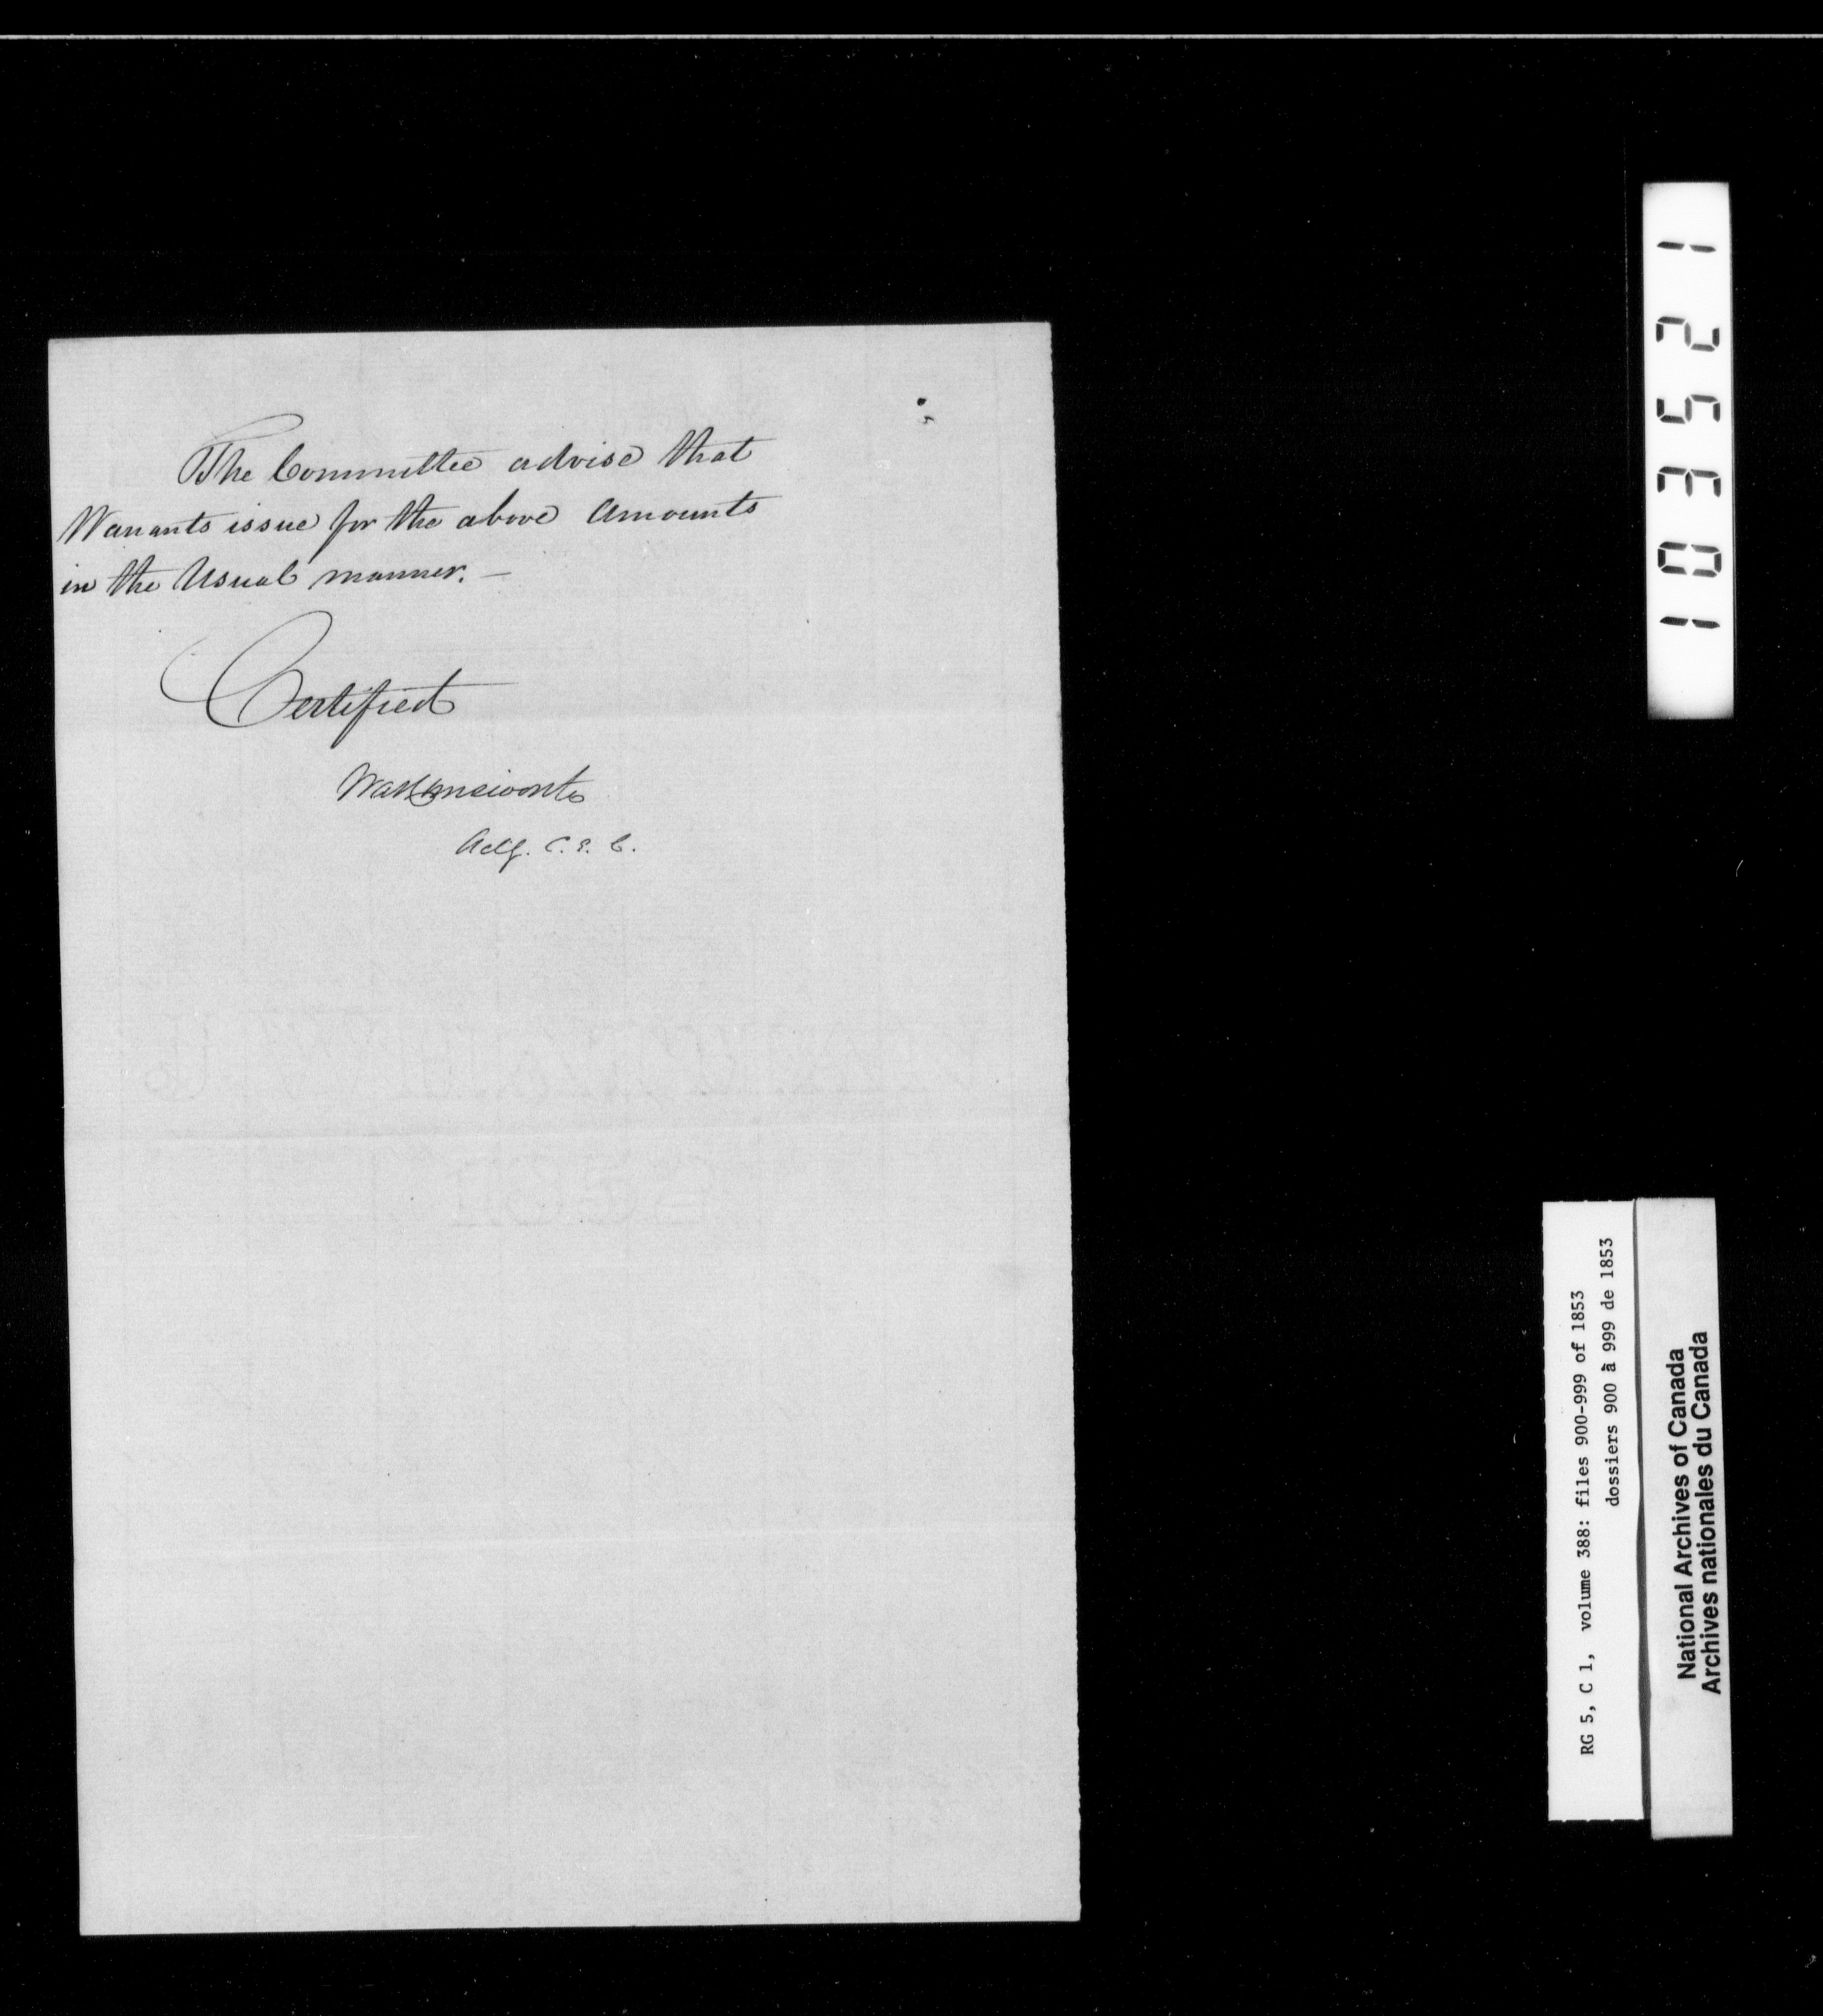 The Committee advise that
Warrants issue for the above Amounts
in the Usual manner. —
Certified
Actg. C. E. C.
103521
RG 5, C 1, volume 388: files 900-999 of 1853
dossiers 900 à 999 de 1853
National Archives of Canada
Archives nationales du Canada